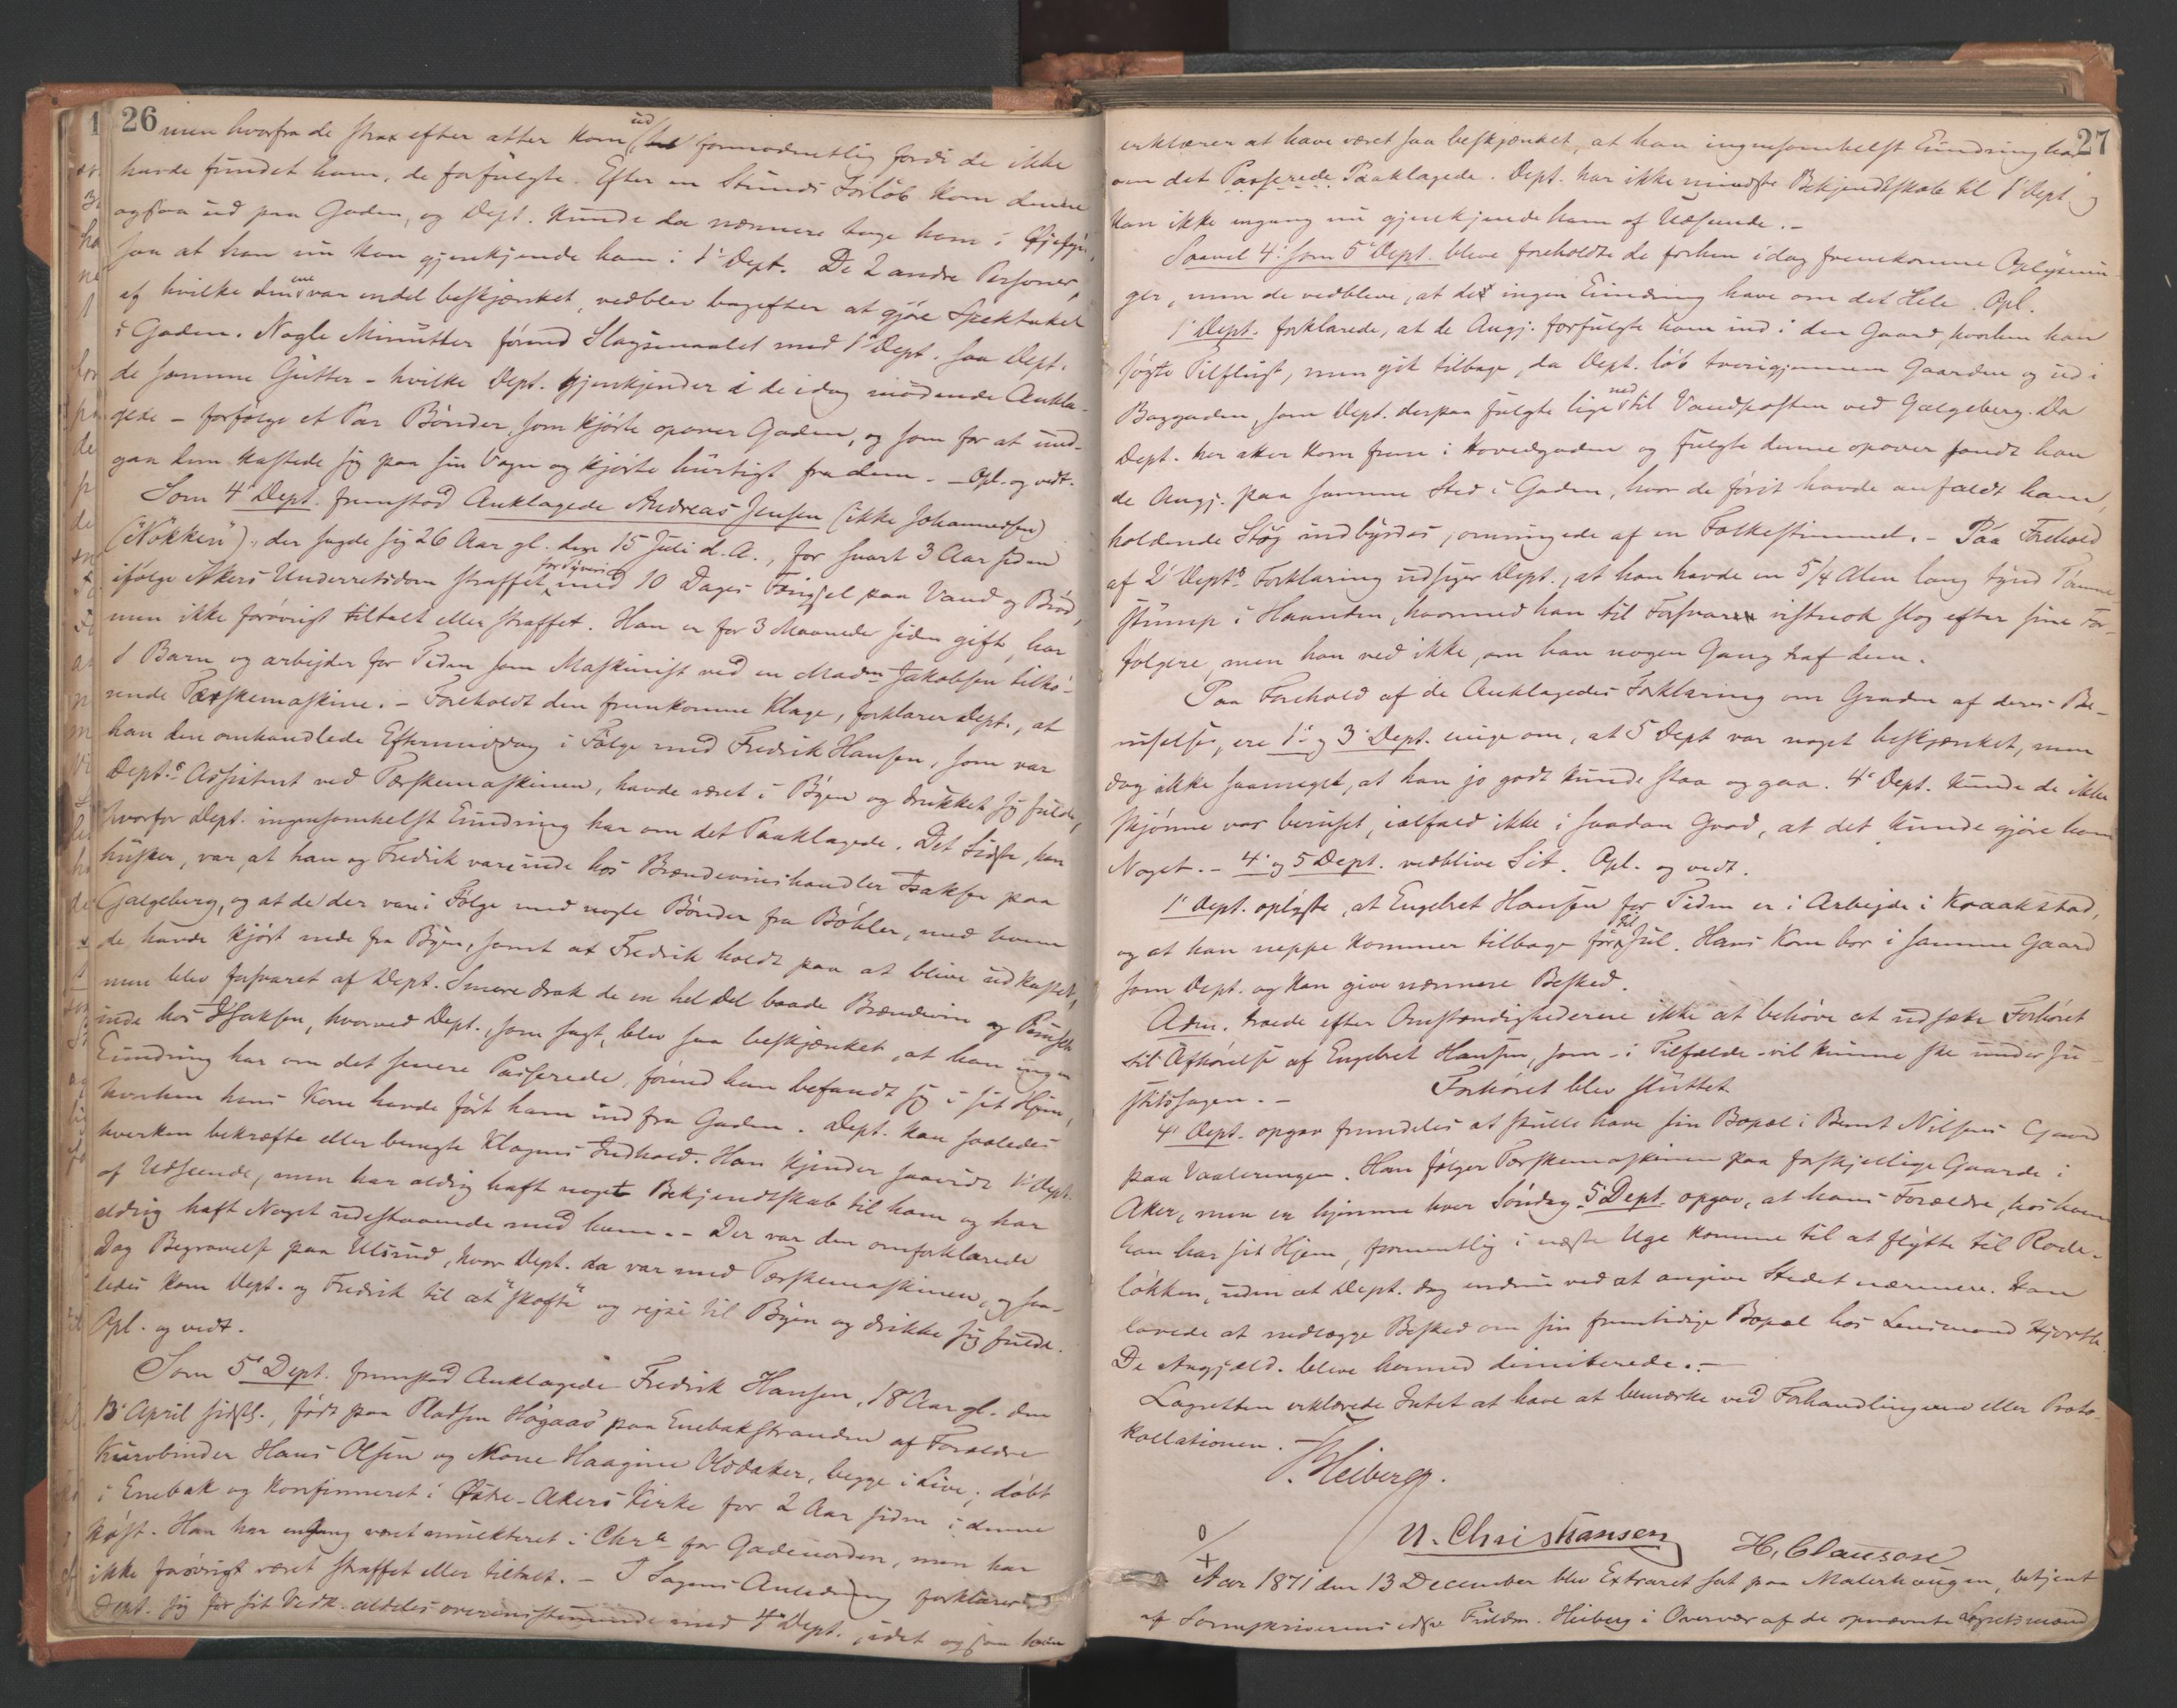 26
men hvorfra de strax efter atter kom ud formodentlig fordi de ikke
havde fundet ham, de forfulgte. Efter en Stunds Forløb kom denne
ogsaa ud paa Gaden, og Dept. kunde da nærmere tage ham i Øjesyn,
saa at han nu kan gjenkjende ham i 1' Dept. De 2 andre Personer,
af hvilke den ene var endel beskjænket, vedblev bagefter at gjøre Spektakel
i Gaden. Nogle Minutter førend Slagsmaalet med 1' Dept. saa Dept.
de samme Gutter - hvilke Dept. gjenkjender i de idag mødende Ankla-
gede - forfølge et Par Bønder, som kjørte opover Gaden, og som for at und-
gaa dem kastede sig paa sin Vogn og kjørte hurtigt fra dem. - Opl. og vedt.
Som 4' Dept. fremstod Anklagede Andreas Jensen (ikke Johannesen)
("Nøkken"), der sagde sig 26 Aar gl. den 15 Juli d.A., for snart 3 Aar siden
ifølge Akers Underretsdom straffet for Tyveri med 10 Dages Fængsel paa Vand og Brød,
men ikke forøvrigt tiltalt eller straffet. Han er for 3 Maaneder siden gift, har
1 Barn og arbejder for Tiden som Maskinist ved en Madm Jakobsen tilhø-
rende Tærskemaskine. - Foreholdt den fremkomne Klage, forklarer Dept., at
han den omhandlede Eftermiddag i Følge med Fredrik Hansen, som var
Dept.s Assistent ved Tærskemaskinen, havde været i Byen og drukket sig fulde,
hvorfor Dept. ingensomhelst Erindring har om det Paaklagede. Det Sidste, han
husker, var, at han og Fredrik vare inde hos Brændevinshandler Isaksen paa
Galgeberg, og at de der vare i Følge med nogle Bønder fra Bøhler, med hvem
de havde kjørt nede fra Byen, samt at Fredrik holdt paa at blive udkastet,
men blev forsvaret af Dept. Senere drak de en hel Del baade Brændevin og Punsch
inde hos Isaksen, hvorved Dept., som sagt, blev saa beskjænket, at han ingen
Erindring har om det senere Passerede, førend han befandt sig i sit Hjem,
hvorhen hans Kone havde ført ham ind fra Gaden. Dept. kan saaledes
hverken bekræfte eller benægte Klagens Indhold. Han kjender saavidt 1' Dept.
af Udseende, men har aldrig haft noget Bekjendtskab til ham og har
aldrig haft Noget udestaaende med ham. - Der var den omforklarede
Dag Begravelse paa Ulsrud, hvor Dept. da var med Tærskemaskinen, og saa-
ledes kom Dept. og Fredrik til at "skofte" og rejse til Byen og drikke sig fulde.
Opl. og vedt.
Som 5' Dept. fremstod Anklagede Fredrik Hansen, 18 Aar gl. den
13' April sidstl., født paa Pladsen Høgaas paa Enebakstranden af Forældre
Kurvbinder Hans Olsen og Kone Haagine Oldaker, begge i Live; døbt
i Enebak og konfirmeret i Østre-Akers Kirke for 2 Aar siden i denne
Høst. Han har engang været mulkteret i Chra for Gadeuorden, men har
ikke forøvrigt været straffet eller tiltalt. - I Sagens Anledning forklarer
Dept. sig for sit Vedk. aldeles overensstemmende med 4' Dept., idet ogsaa han
27
erklærer at have været saa beskjænket, at han ingensomhelst Erindring har
om det Passerede Paaklagede. Dept. har ikke mindste Bekjendtskab til 1' Dept. og
kan ikke engang nu gjenkjende ham af Udseende. -
Saavel 4' som 5' Dept. bleve foreholdte de forhen idag fremkomne Oplysnin-
ger, men de vedbleve, at de ingen Erindring have om det Hele. Opl.
1' Dept. forklarede, at de Angj. forfulgte ham ind i den Gaard, hvorhen han
søgte Tilflugt, men gik tilbage, da Dept. løb tversigjennem Gaarden og ud i
Baggaden, som Dept. derpaa fulgte lige ned til Vandposten ved Galgeberg. Da
Dept. her atter kom frem i Hovedgaden og fulgte denne opover fandt han
de Angj. paa samme Sted i Gaden, hvor de først havde anfaldt ham,
holdende Støj indbyrdes, omringede af en Folkestimmel. - Paa Forehold
af 2' Depts Forklaring udsiger Dept., at han havde en 5/4 Alen lang tynd Tømme
stump i Haanden, hvormed han til Forsvar vistnok slog efter sine For-
følgere, men han ved ikke, om han nogen Gang traf dem.
Paa Forehold af de Anklagedes Forklaring om Graden af deres Be-
ruselse, ere 1' og 3' Dept. enige om, at 5 Dept var noget beskjænket, men
dog ikke saameget, at han jo godt kunde staa og gaa. 4' Dept. kunde de ikke
skjønne var beruset, ialfald ikke i saadan Grad, at det kunde gjøre ham
Noget. - 4' og 5 Dept. vedblive Sit. Opl. og vedt.
1' Dept. oplyste, at Engebret Hansen for Tiden er i Arbejde i Kraakstad,
og at han neppe kommer tilbage før til Jul. Hans Kone bor i samme Gaard
som Dept. og kan give nærmere Besked.
Adm. troede efter Omstændighederne ikke at behøve at udsætte Forhøret
til Afhørelse af Engebret Hansen, som - i Tilfælde - vil kunne ske under Ju-
stitssagen. - Forhøret blev sluttet
4' Dept. opgav fremdeles at skulle have sin Bopæl i Bernt Nilsens Gaard
paa Vaaleringen. Han følger Tærskemaskinen paa forskjellige Gaarde i
Aker, men er hjemme hver Søndag. 5 Dept. opgav, at hans Forældre, hos hvem
han har sit Hjem, formentlig i næste Uge komme til at flytte til Rode-
løkken, uden at Dept. dog endnu ved at angive Stedet nærmere. Han
lovede at nedlægge Besked om sin fremtidige Bopæl hos Lensmand Hjorth.
De Angjæld. bleve hermed dimitterede. -
Lagretten erklærede Intet at have at bemærke ved Forhandlingerne eller Proto-
kollationen.
Heiberg.
N. Christiansen H, Clausen
Aar 1871 den 13 December blev Extraret sat paa Malerhaugen, betjent
af Sorenskriverens edsv Fuldm. Heiberg i Overvær af de opnævnte Lagretsmænd